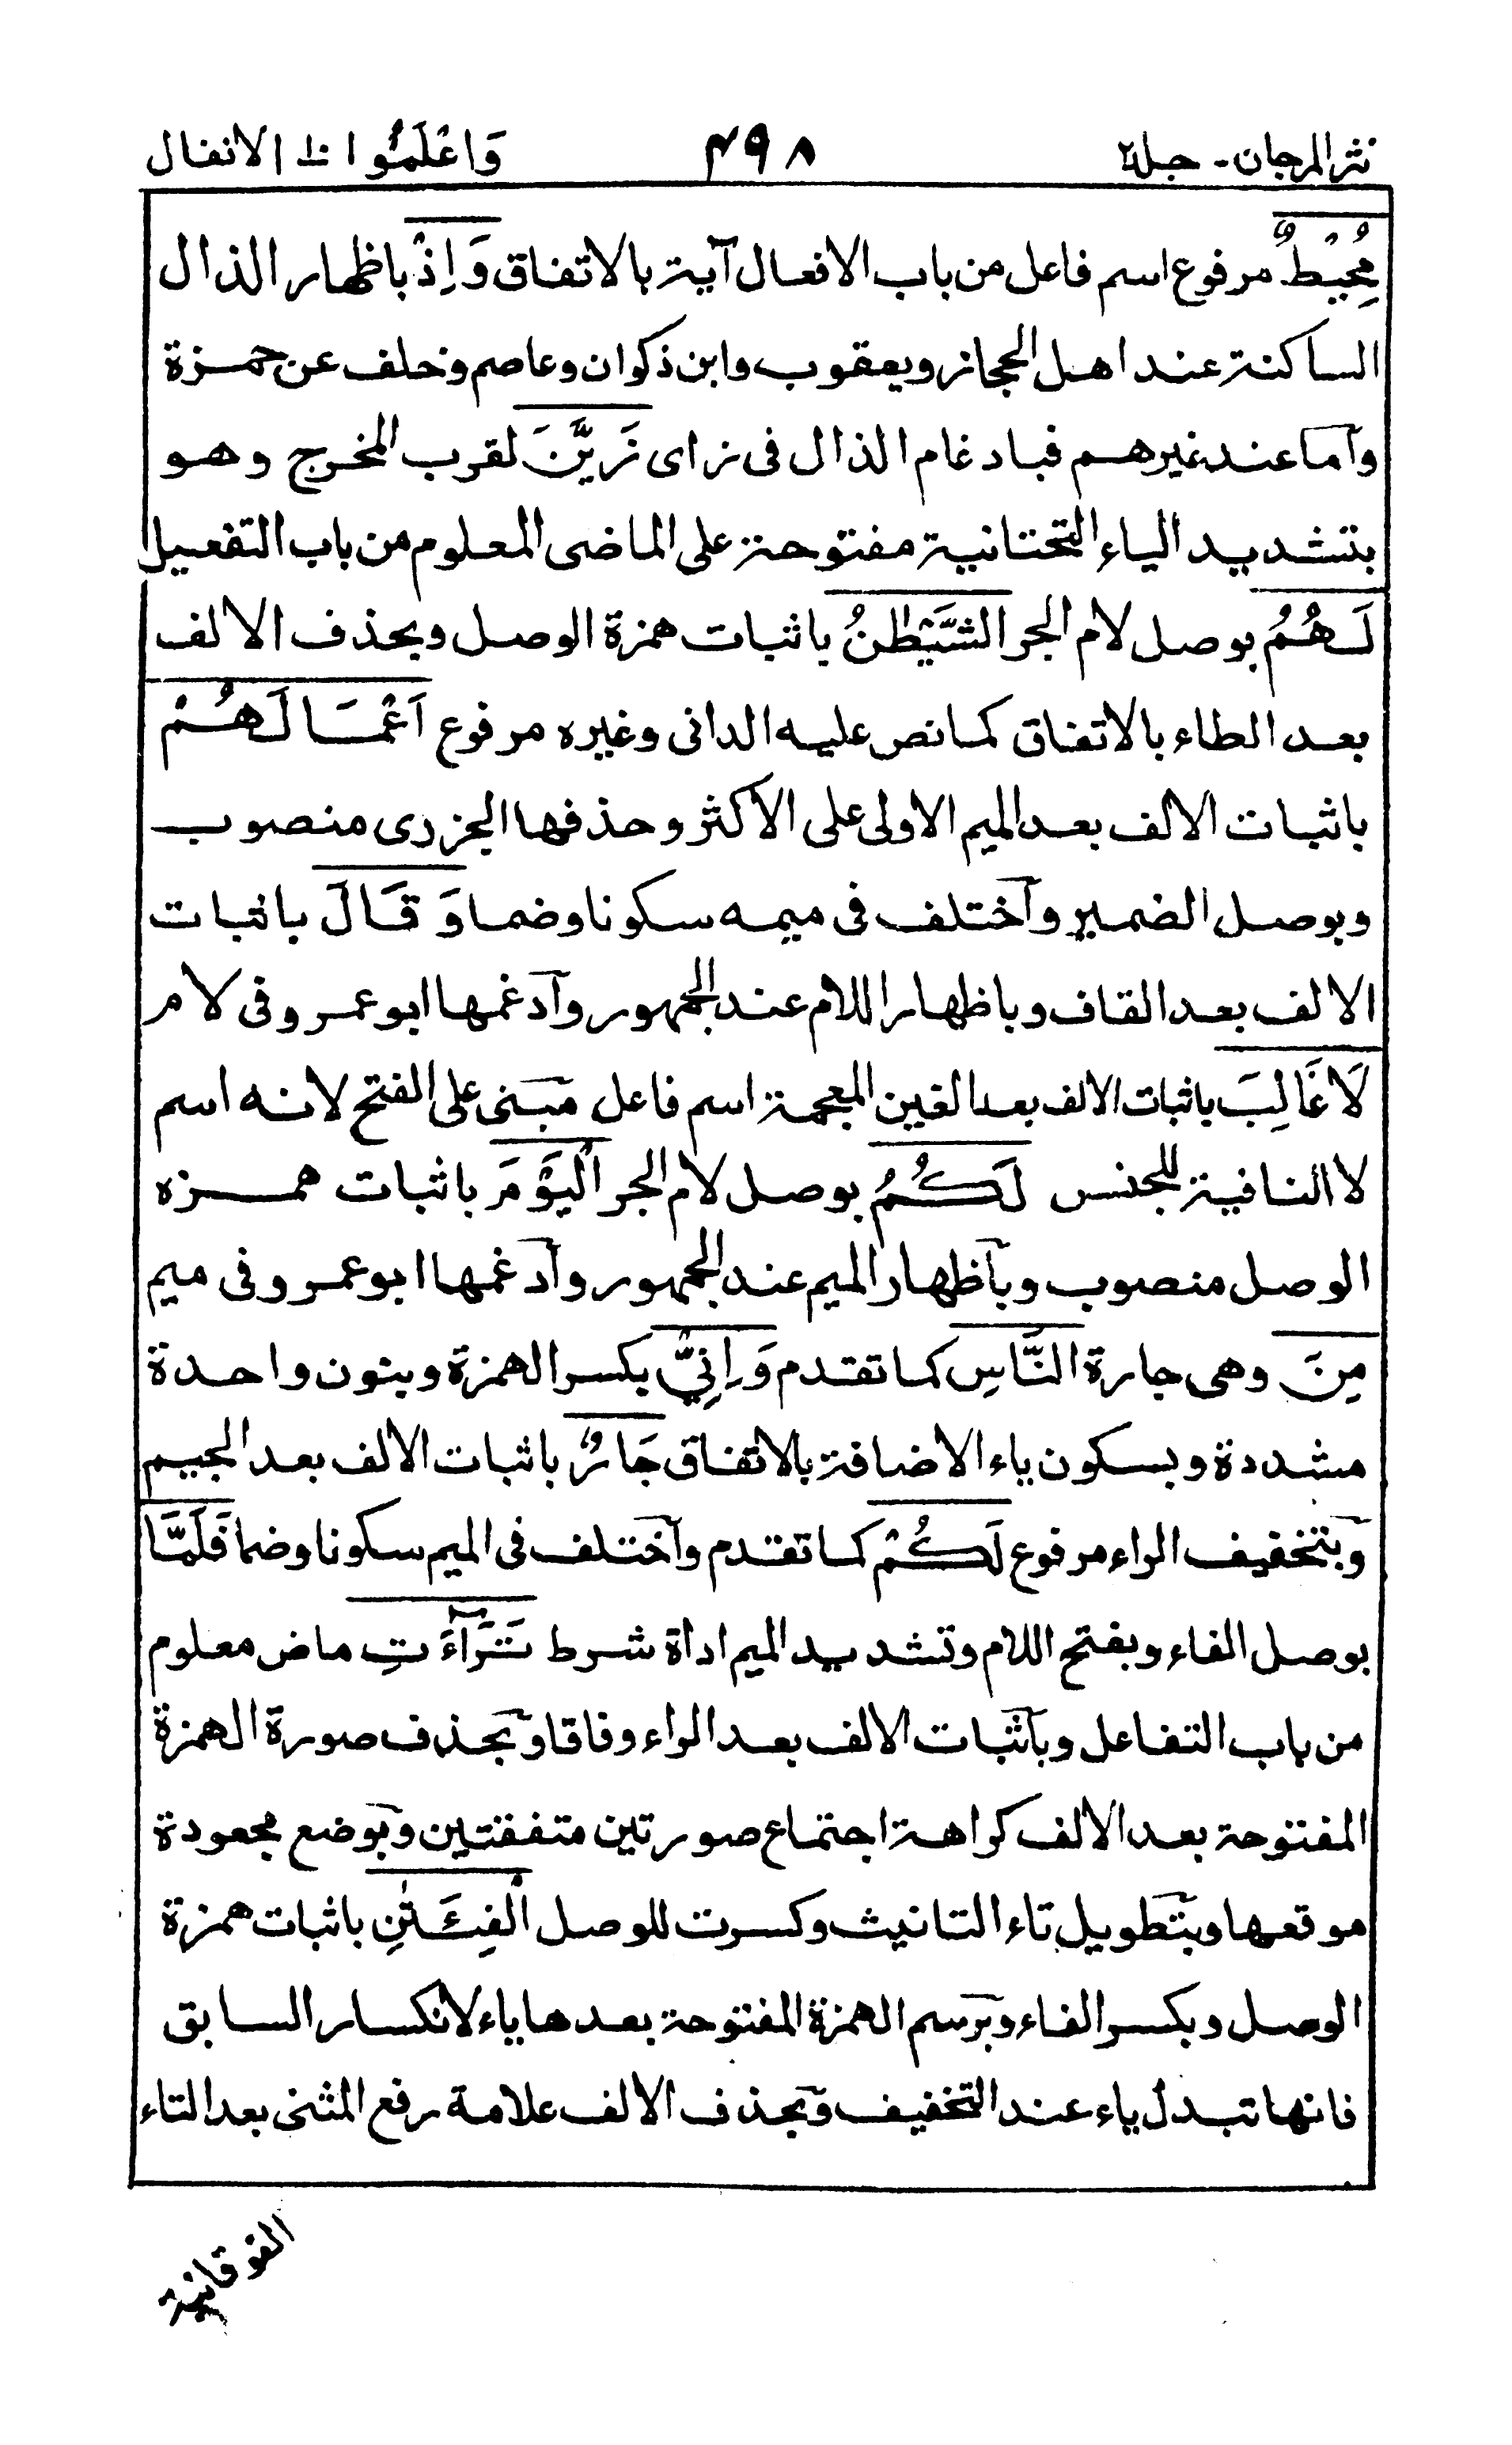 نثر المرجان - جلد٢ ٤٩٨ وَاعْلَمُوا ١٠ الانفال
مُحِيْطٌ مرفوع اسم فاعل من باب الافعال آية بالاتفاق وَاِذْ باظهار الذال
الساكنة عند اهل الحجاز ويعقوب وابن ذكوان وعاصم وخلف عن حمزة
وآما عند غيرهم فبادغام الذال فى زاى زَيَّنَ لقرب المخرج وهو
بتشديد الياء التحتانية مفتوحة على الماضى المعلوم من باب التفعيل
لَهُمُ بوصل لام الجر الشَّيْطٰنُ باثبات همزة الوصل وبحذف الالف
بعد الطاء بالاتفاق كما نص عليه الدانى وغيره مرفوع اَعْمَالَهُمْ
باثبات الالف بعد الميم الاولى على الاكثر وحذفها الجزرى منصوب
وبوصل الضمير وآختلف فى ميمه سكونا وضما وَقَالَ باثبات
الالف بعد القاف وباظهار اللام عند الجمهور وآدغمها ابو عمرو فى لام
لَا غَالِبَ باثبات الالف بعد الغين المعجمة اسم فاعل مبنى على الفتح لانه اسم
لا النافية للجنس لَكُمُ بوصل لام الجر الْيَوْمَ باثبات همزه
الوصل منصوب وبآظهار الميم عند الجمهور وآدغمها ابو عمرو فى ميم
مِنَ وهى جارة النَّاسِ كما تقدم وَاِنِّيْ بكسر الهمزة وبنون واحدة
مشددة وبسكون ياء الاضافة بالاتفاق جَارٌ باثبات الالف بعد الجيم
وبتخفيف الراء مرفوع لَكُمْ كما تقدم وآختلف فى الميم سكونا وضما فَلَمَّا
بوصل الفاء وبفتح اللام وتشديد الميم اداة شرط تَرَآءَتِ ماض معلوم
من باب التفاعل وبآثبات الالف بعد الراء وفاقا وبحذف صورة الهمزة
المفتوحة بعد الالف كراهة اجتماع صورتين متفقتين وبوضع مجعودة
موقعها وبتطويل تاء التانيث وكسرت للوصل الْفِئَتٰنِ باثبات همزة
الوصل وبكسر الفاء وبرسم الهمزة المفتوحة بعدها ياء لانكسار السابق
فانها تبدل ياء عند التخفيف وبحذف الالف علامة رفع المثنى بعد التاء
الفوقانية